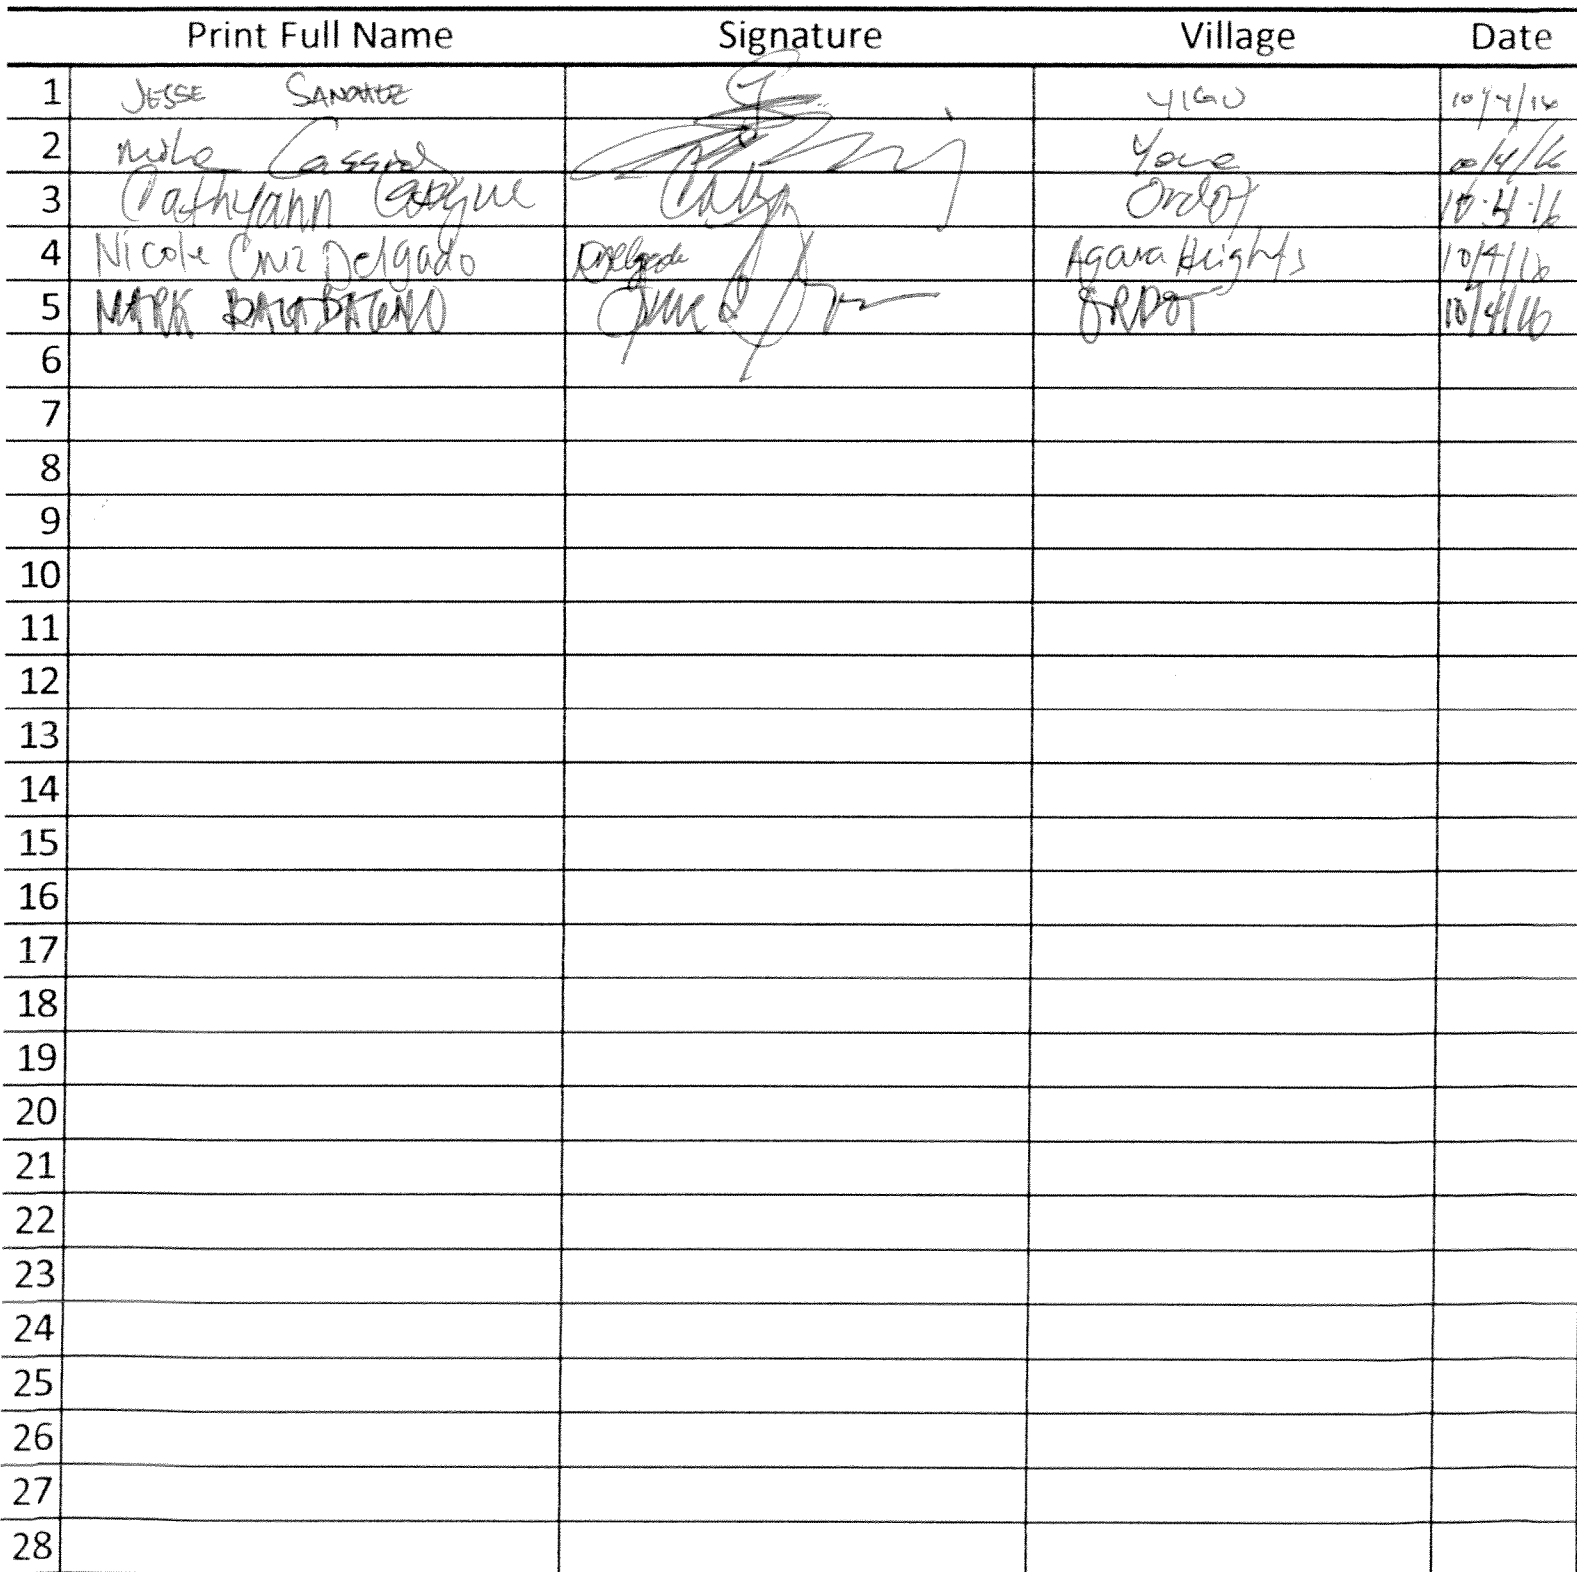 Print Full Name Signature Village Date
1 JESSE SANCHEZ YIGO 10/4/16
2 Mike Yona 10/4/16
3 Cathyann Ordot 10.4.16
4 Nicole Cruz Delgado Delgado Agana Heights 10/4/16
5 MARK ORDOT 10/4/16
6
7
8
9
10
11
12
13
14
15
16
17
18
19
20
21
22
23
24
25
26
27
28